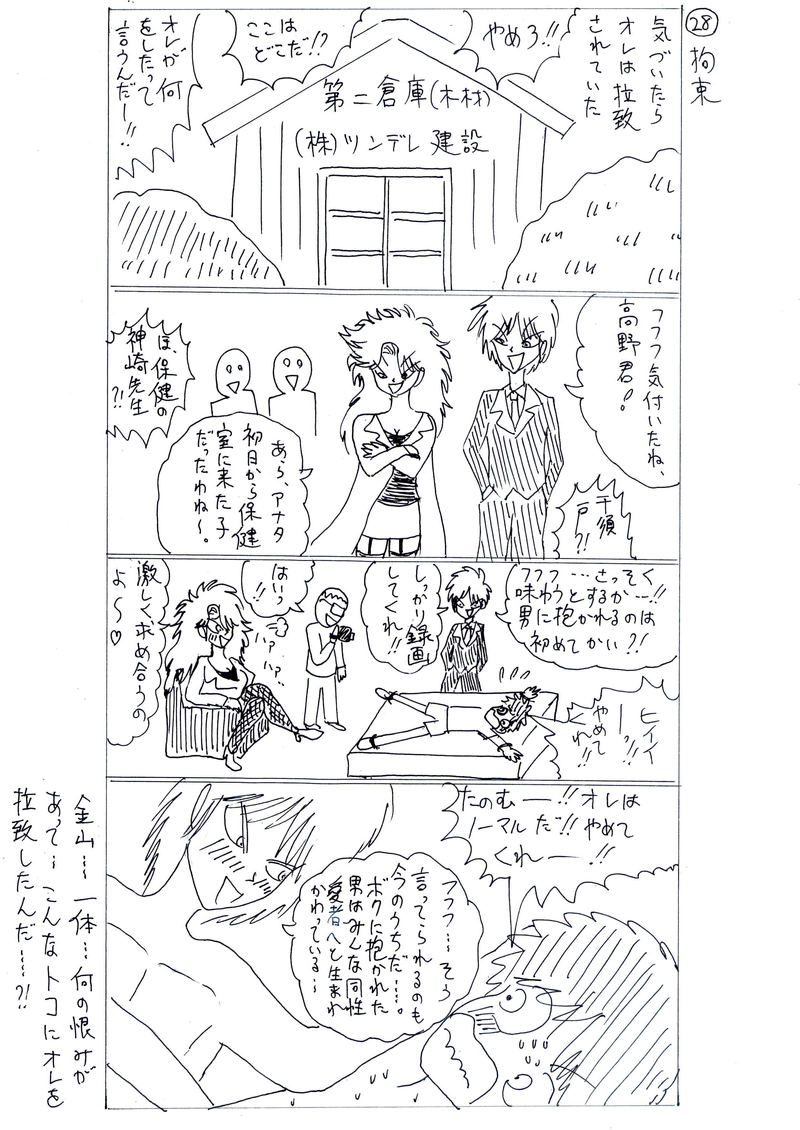 ㉘ 拘束
気づいたら
オレは拉致
されていた
やめろ!!
ここは
どこだ!?
オレが何
をしたって
言うんだー!!
第二倉庫(木材)
(株)ツンデレ建設
フフフ気付いたね、
高野君!
千須
戸?!
あら、アナタ
初日から保健
室に来た子
だったわね〜。
ほ、保健の
神崎先生
?!
フフフ…さっそく
味わうとするか…!!
男に抱かれるのは
初めてかい?!
ヒィィ
ーッ!!
やめて
くれ!!
しっかり録画
してくれ!!
はいっ
!!
ハァ
ハァ…
激しく求め合うの
よ〜♡
たのむー!!オレは
ノーマルだ!!やめて
くれー!!
フフフ…そう
言ってられるのも
今のうちだ…。
ボクに抱かれた
男はみんな同性
愛者へと生まれ
かわっている…
金山…一体…何の恨みが
あって…こんなトコにオレを
拉致したんだ…?!